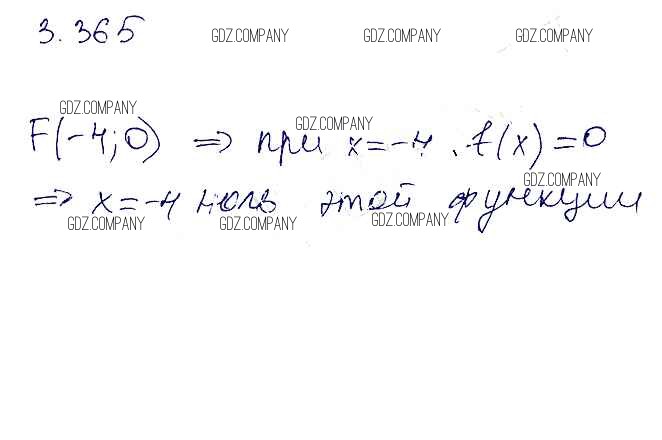 3.365
GDZ.COMPANY GDZ.COMPANY GDZ.COMPANY
GDZ.COMPANY
GDZ.COMPANY
F(-4;0) ⇒ при x=-4, f(x)=0
GDZ.COMPANY
⇒ x=-4 ноль этой функции
GDZ.COMPANY GDZ.COMPANY GDZ.COMPANY